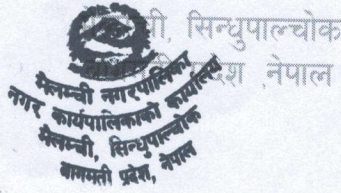 ची, सिन्धुपाल्चोक
देश ,नेपाल
मेलम्ची नगरपालिका
नगर कार्यपालिकाको कार्यालय
मेलम्ची, सिन्धुपाल्चोक
बागमती प्रदेश, नेपाल